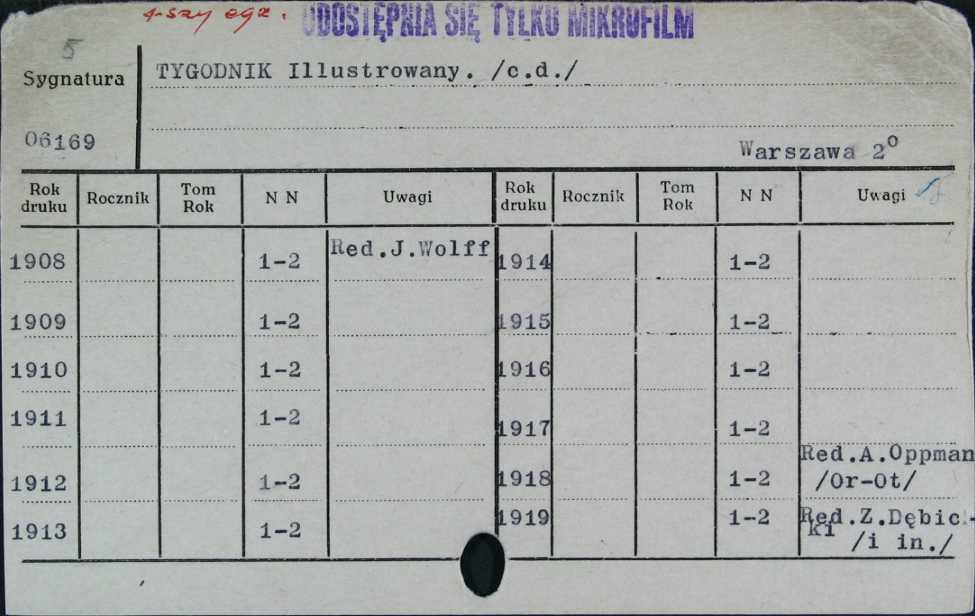 1-szy egz.
UDOSTĘPNIA SIĘ TYLKO MIKROFILM
5
Sygnatura
TYGODNIK Illustrowany. /c.d./
06169
Warszawa 2º
Rok druku | Rocznik | Tom Rok | N N | Uwagi | Rok druku | Rocznik | Tom Rok | N N | Uwagi
1908 1-2 Red.J.Wolff 1914 1-2
1909 1-2 1915 1-2
1910 1-2 1916 1-2
1911 1-2 1917 1-2
1912 1-2 1918 1-2 Red.A.Oppman
/Or-Ot/
1913 1-2 1919 1-2 Red.Z.Dębic-
ki
/i in./